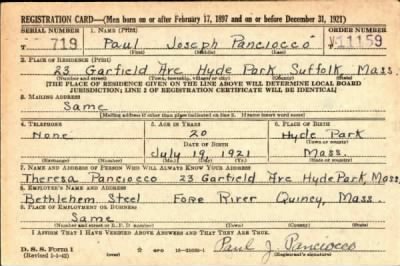 REGISTRATION CARD—(Men born on or after February 17, 1897 and on or before December 31, 1921)
SERIAL NUMBER 1. NAME (Print) ORDER NUMBER
T 719 Paul Joseph Panciocco 11159
(First) (Middle) (Last)
2. PLACE OF RESIDENCE (Print)
23 Garfield Ave Hyde Park Suffolk Mass.
(Number and street) (Town, township, village, or city) (County) (State)
[THE PLACE OF RESIDENCE GIVEN ON THE LINE ABOVE WILL DETERMINE LOCAL BOARD
JURISDICTION; LINE 2 OF REGISTRATION CERTIFICATE WILL BE IDENTICAL]
3. MAILING ADDRESS
Same
[Mailing address if other than place indicated on line 2. If same insert word same]
4. TELEPHONE 5. AGE IN YEARS 6. PLACE OF BIRTH
None 20 Hyde Park
DATE OF BIRTH (Town or county)
July 19 1921 Mass.
(Exchange) (Number) (Mo.) (Day) (Yr.) (State or country)
7. NAME AND ADDRESS OF PERSON WHO WILL ALWAYS KNOW YOUR ADDRESS
Theresa Panciocco 23 Garfield Ave Hyde Park, Mass
8. EMPLOYER'S NAME AND ADDRESS
Bethlehem Steel Fore River Quincy, Mass.
9. PLACE OF EMPLOYMENT OR BUSINESS
Same
(Number and street or R. F. D. number) (Town) (County) (State)
I AFFIRM THAT I HAVE VERIFIED ABOVE ANSWERS AND THAT THEY ARE TRUE.
D. S. S. Form 1
(Revised 1-1-42) Paul J. Panciocco
(Registrant's signature)